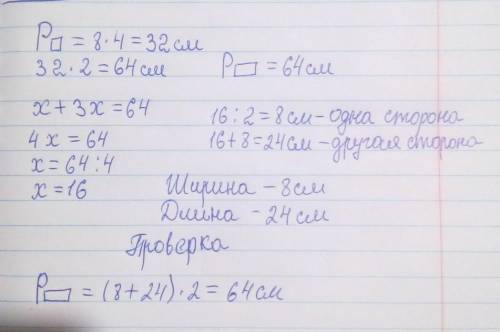 P□ = 8·4 = 32см
32·2 = 64см
P▭ = 64см
x + 3x = 64
4x = 64
x = 64:4
x = 16
16:2 = 8см – одна сторона
16+8 = 24см – другая сторона
Ширина – 8см
Длина – 24см
Проверка
P▭ = (8+24)·2 = 64см